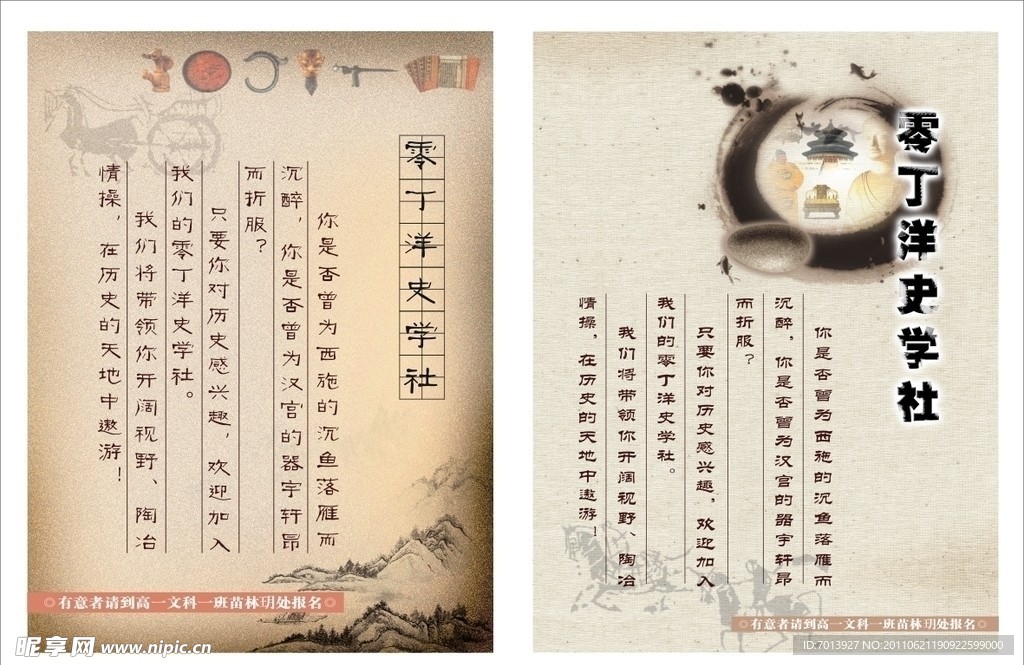 零丁洋史学社
你是否曾为西施的沉鱼落雁而
沉醉，你是否曾为汉宫的器宇轩昂
而折服？
只要你对历史感兴趣，欢迎加入
我们的零丁洋史学社。
我们将带领你开阔视野、陶冶
情操，在历史的天地中遨游！
◎有意者请到高一文科一班苗林玥处报名◎
零丁洋史学社
你是否曾为西施的沉鱼落雁而
沉醉，你是否曾为汉宫的器宇轩昂
而折服？
只要你对历史感兴趣，欢迎加入
我们的零丁洋史学社。
我们将带领你开阔视野、陶冶
情操，在历史的天地中遨游！
◎有意者请到高一文科一班苗林玥处报名◎
昵享网 www.nipic.cn
ID:7013927 NO:20110621190922599000